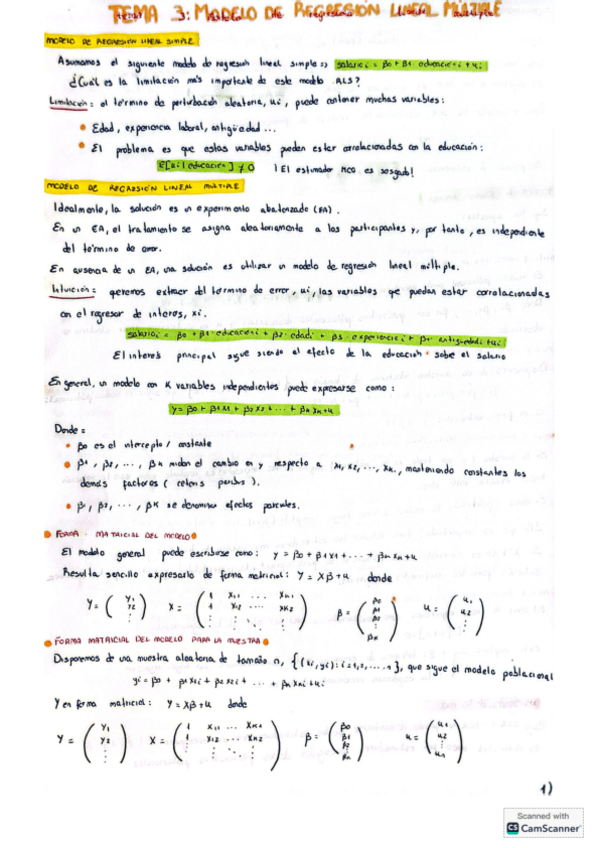 TEMA 3: MODELO DE REGRESIÓN LINEAL MÚLTIPLE
MODELO DE REGRESIÓN LINEAL SIMPLE
Asumamos el siguiente modelo de regresión lineal simple => salario i = β0 + β1 · educación i + ui
¿Cuál es la limitación más importante de este modelo RLS?
Limitación: el término de perturbación aleatoria, ui, puede contener muchas variables:
• Edad, experiencia laboral, antigüedad ...
• El problema es que estas variables pueden estar correlacionadas con la educación:
E[ui|educación] ≠ 0 ¡El estimador MCO es sesgado!
MODELO DE REGRESIÓN LINEAL MÚLTIPLE
Idealmente, la solución es un experimento (EA).
En un EA, el tratamiento se asigna aleatoriamente a los participantes y, por tanto, es independiente
del término de error.
En ausencia de un EA, una solución es utilizar un modelo de regresión lineal múltiple.
Intuición: queremos extraer del término de error, ui, las variables que puedan estar correlacionadas
con el regresor de interés, xi.
salario i = β0 + β1 · educación i + β2 · edad i + β3 · experiencia i + β4 · antigüedad i + ui
El interés principal sigue siendo el efecto de la educación sobre el salario
En general, un modelo con K variables independientes puede expresarse como:
y = β0 + β1x1 + β2x2 + ... + βkxk + u
Donde:
• β0 es el intercepto / constante
• β1, β2, ..., βK miden el cambio en y respecto a x1, x2, ..., xk, manteniendo constantes los
demás factores (ceteris paribus).
• β1, β2, ..., βK se denominan efectos parciales.
• FORMA MATRICIAL DEL MODELO •
El modelo general puede escribirse como: y = β0 + β1x1 + ... + βkxk + u
Resulta sencillo expresarlo de forma matricial: Y = Xβ + u donde
Y = ( Y1 Y2 ⋮ ) X = ( 1 X11 ... XK1 1 X12 ... XK2 ⋮ ) β = ( β0 β1 β2 ⋮ βK ) u = ( u1 u2 ⋮ )
• FORMA MATRICIAL DEL MODELO PARA LA MUESTRA •
Disponemos de una muestra aleatoria de tamaño n, {(xi, yi): i = 1, 2, ..., n}, que sigue el modelo poblacional
yi = β0 + β1x1i + β2x2i + ... + βkxki + ui
Y en forma matricial: Y = Xβ + u donde
Y = ( Y1 Y2 ⋮ ) X = ( 1 X11 ... XK1 1 X12 ... XK2 ⋮ ) β = ( β0 β1 β2 ⋮ βk ) u = ( u1 u2 ⋮ )
1)
Scanned with
CS CamScanner